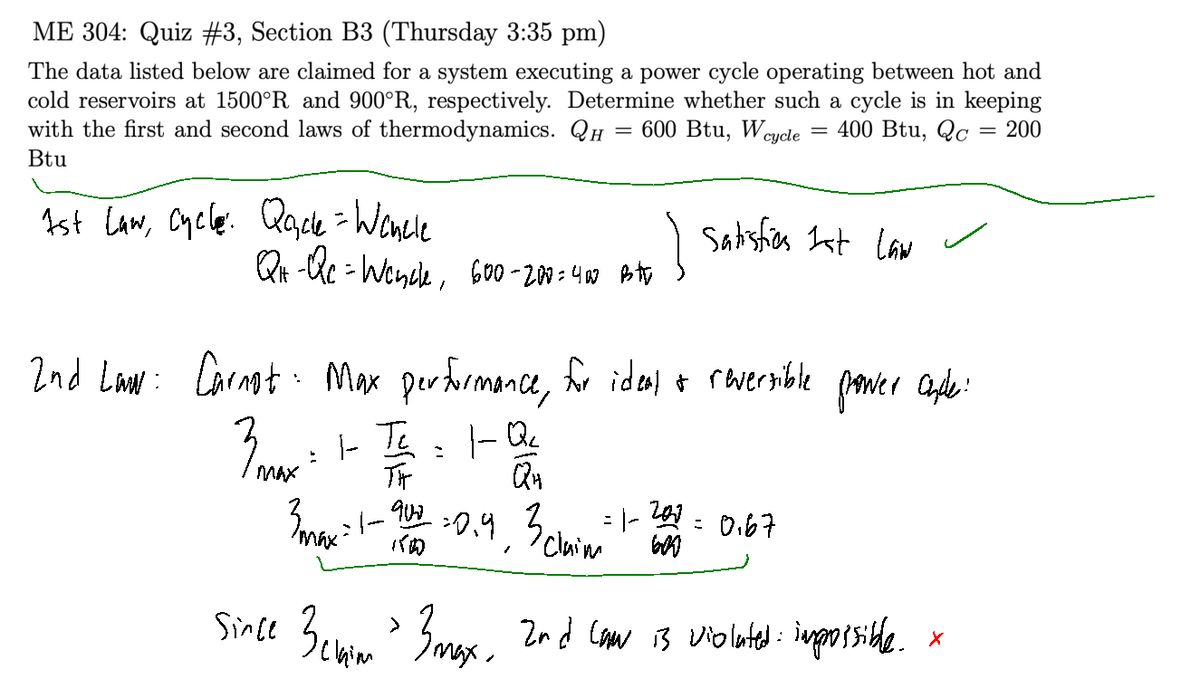 ME 304: Quiz #3, Section B3 (Thursday 3:35 pm)
The data listed below are claimed for a system executing a power cycle operating between hot and
cold reservoirs at 1500°R and 900°R, respectively. Determine whether such a cycle is in keeping
with the first and second laws of thermodynamics. Q_H = 600 Btu, W_cycle = 400 Btu, Q_C = 200
Btu
1st Law, Cycle: Qcycle = Wcycle
QH - QC = Wcycle, 600 - 200 = 400 Btu } Satisfies 1st Law ✓
2nd Law: Carnot: Max performance, for ideal & reversible power cycle:
η_max = 1 - T_C/T_H = 1 - Q_C/Q_H
η_max = 1 - 900/1500 = 0.4, η_claim = 1 - 200/600 = 0.67
Since η_claim > η_max, 2nd Law is violated: impossible. ×